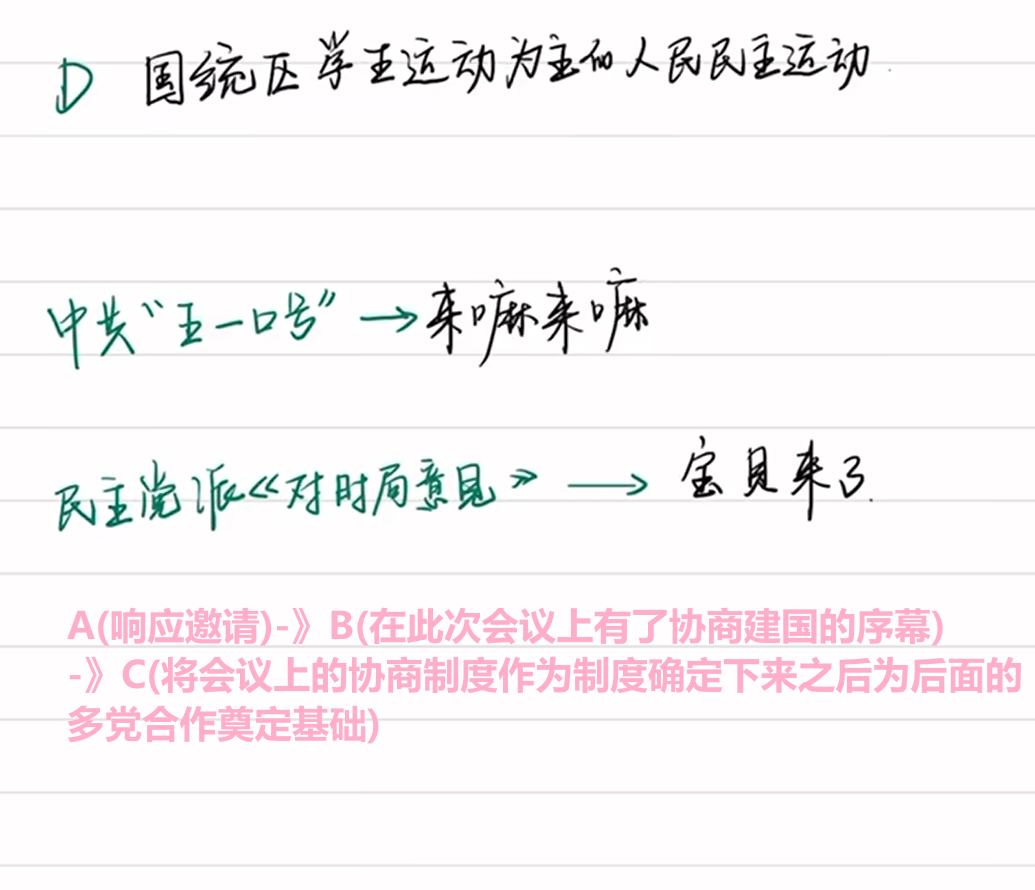 D 国统区学生运动为主的人民民主运动
中共“五一口号”→来嘛来嘛
民主党派《对时局意见》→宝贝来了
A(响应邀请)-》B(在此次会议上有了协商建国的序幕)
-》C(将会议上的协商制度作为制度确定下来之后为后面的
多党合作奠定基础)